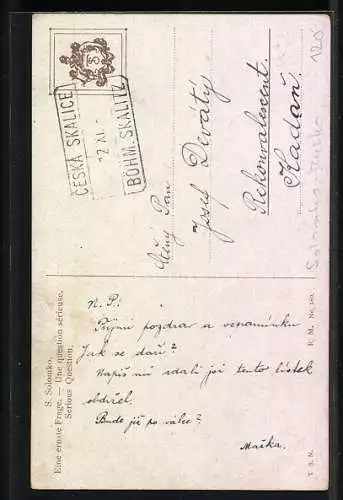 S. Solomko.
Eine ernste Frage. — Une question sérieuse.
Serious Question.
N. P!
Přijmi pozdrav a vzpomínku
Jak se daří?
Napiš mi zdali jsi tento lístek
obdržel.
Bude již po válce?
Maťka.
T. S. N.
R. M. No. 180.
ČESKÁ SKALICE
2 XI
BÖHM. SKALITZ
S
Ctěný Pan
Josef Devátý
Rekonvalescent.
Kadaň.
120